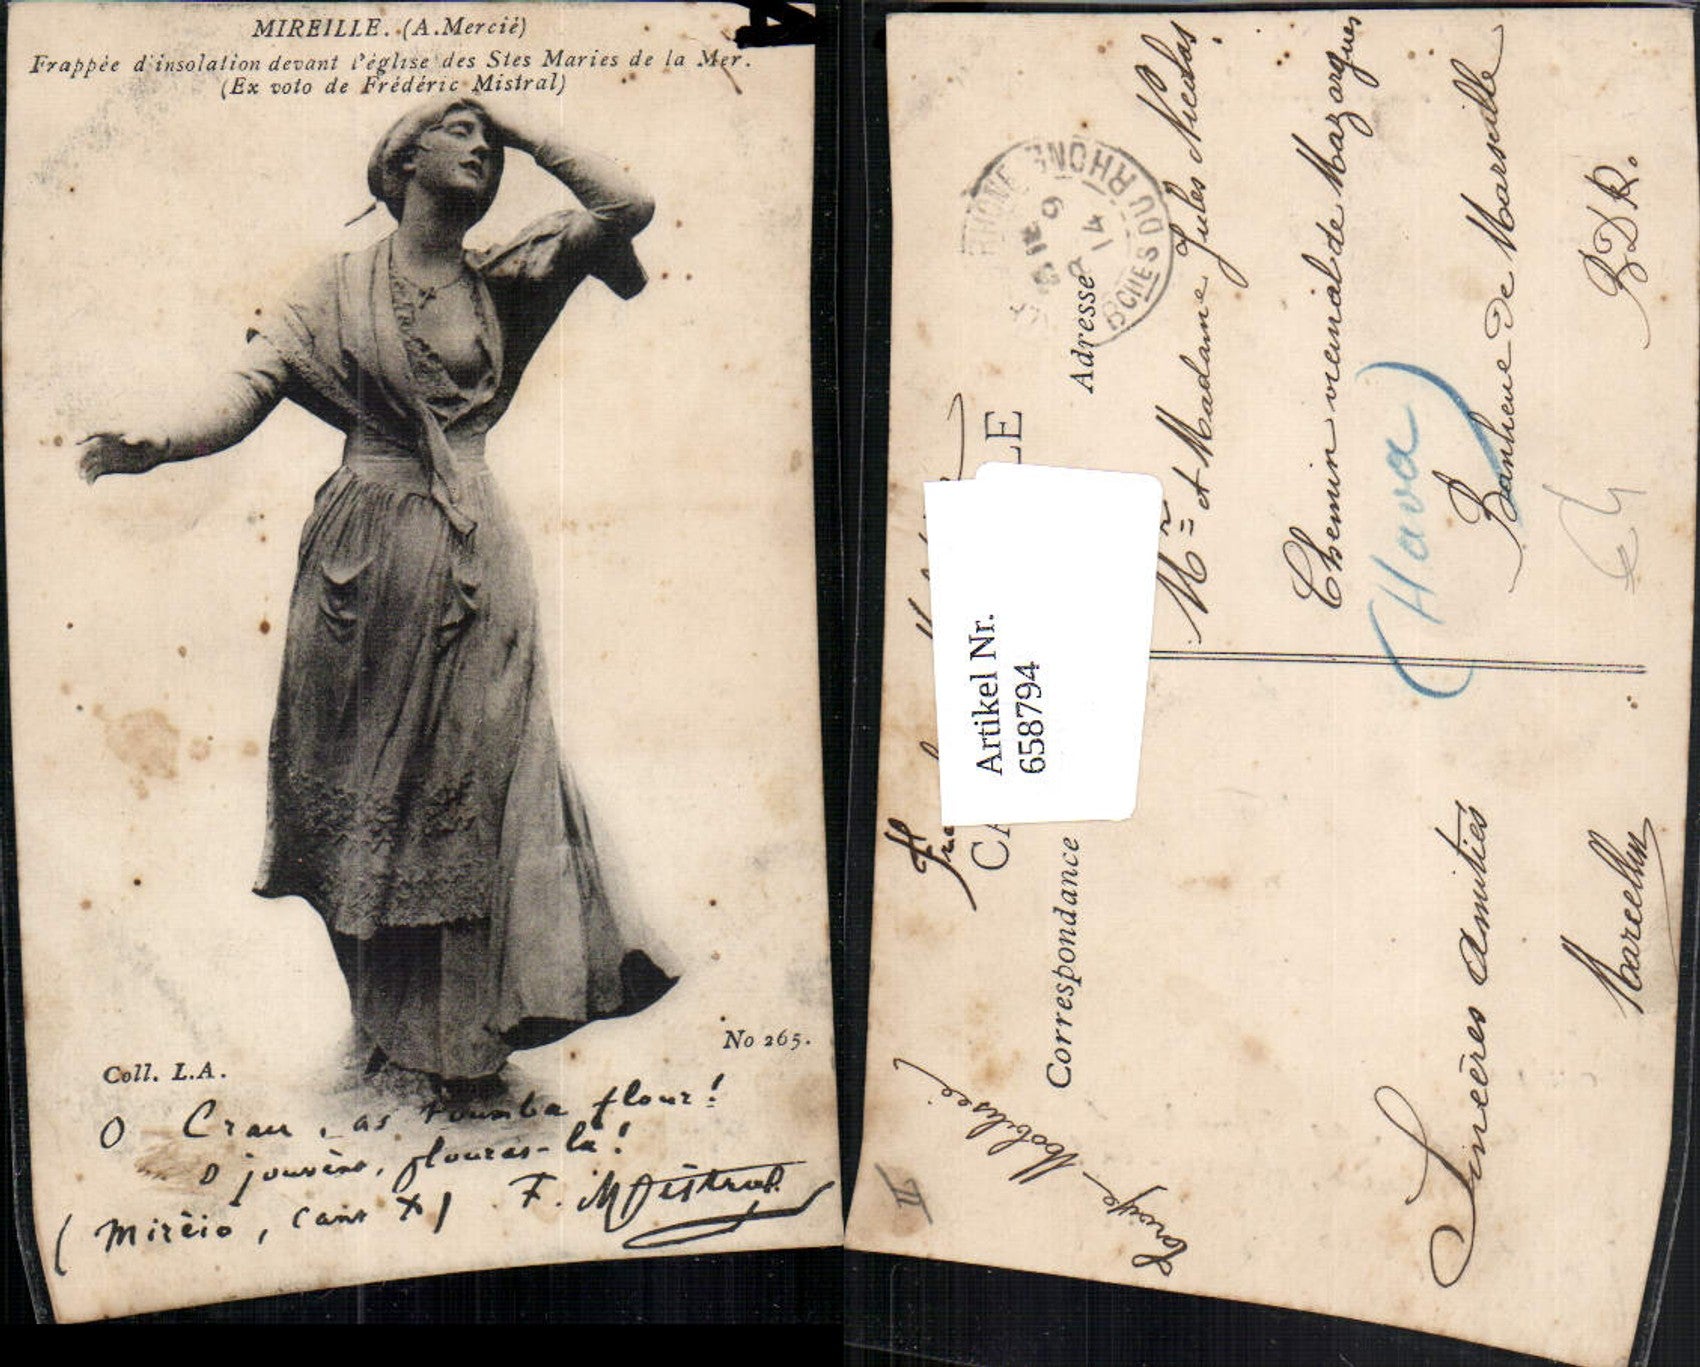 MIREILLE. (A. Mercié)
Frappée d'insolation devant l'église des Stes Maries de la Mer.
(Ex voto de Frédéric Mistral)
No 265.
Coll. L.A.
O Crau, as toumba flour!
O jouvèno, flouras-la!
(Mirèio, cant X) F. Mistral
Artikel Nr.
658794
LE
CA
Correspondance
Adresse
RHONE
BCHES DU RHONE
9
14
Mr et Madame Jules Nicolas
Chemin vicinal de Mazargues
(Hava)
Banlieue de Marseille
B D R.
Sincères amitiés
Marcellin
II